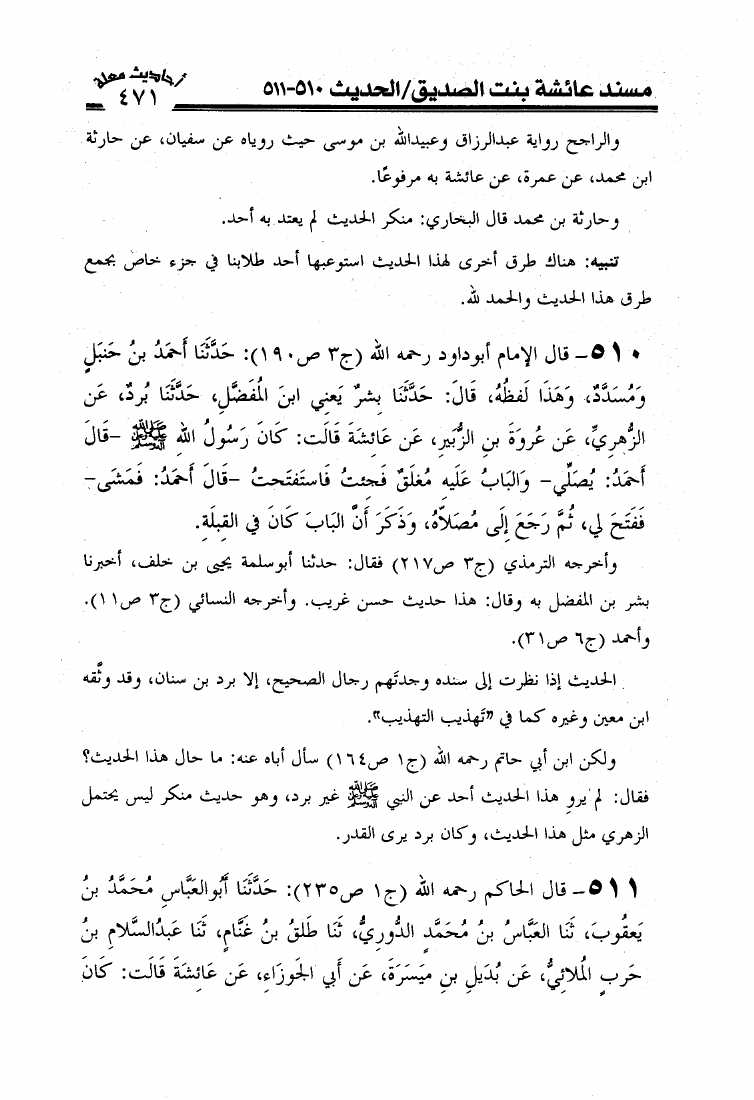 مسند عائشة بنت الصديق/الحديث ٥١٠-٥١١
أحاديث معلة
٤٧١
والراجح رواية عبدالرزاق وعبيدالله بن موسى حيث روياه عن سفيان، عن حارثة
ابن محمد، عن عمرة، عن عائشة به مرفوعًا.
وحارثة بن محمد قال البخاري: منكر الحديث لم يعتد به أحد.
تنبيه: هناك طرق أخرى لهذا الحديث استوعبها أحد طلابنا في جزء خاص بجمع
طرق هذا الحديث والحمد لله.
٥١٠- قال الإمام أبوداود رحمه الله (ج٣ ص١٩٠): حَدَّثَنَا أَحمَدُ بنُ حَنبَلٍ
وَمُسَدَّدٌ، وَهَذَا لَفظُهُ، قَالَ: حَدَّثَنَا بِشرٌ يَعنِي ابنَ الْمُفَضَّلِ، حَدَّثَنَا بُردٌ، عَن
الزُّهرِيِّ، عَن عُروَةَ بنِ الزُّبَيرِ، عَن عَائِشَةَ قَالَت: كَانَ رَسُولُ اللهِ ﷺ -قَالَ
أَحمَدُ: يُصَلِّي- وَالبَابُ عَلَيهِ مُغلَقٌ فَجِئتُ فَاستَفتَحتُ -قَالَ أَحمَدُ: فَمَشَى-
فَفَتَحَ لِي، ثُمَّ رَجَعَ إِلَى مُصَلاَّهُ، وَذَكَرَ أَنَّ البَابَ كَانَ فِي القِبلَةِ.
وأخرجه الترمذي (ج٣ ص٢١٧) فقال: حدثنا أبوسلمة يحيى بن خلف، أخبرنا
بشر بن المفضل به وقال: هذا حديث حسن غريب. وأخرجه النسائي (ج٣ ص١١).
وأحمد (ج٦ ص٣١).
الحديث إذا نظرت إلى سنده وجدتَهم رجال الصحيح، إلا برد بن سنان، وقد وثَّقه
ابن معين وغيره كما في «تَهذيب التهذيب».
ولكن ابن أبي حاتم رحمه الله (ج١ ص١٦٤) سأل أباه عنه: ما حال هذا الحديث؟
فقال: لم يرو هذا الحديث أحد عن النبي ﷺ غير برد، وهو حديث منكر ليس يحتمل
الزهري مثل هذا الحديث، وكان برد يرى القدر.
٥١١- قال الحاكم رحمه الله (ج١ ص٢٣٥): حَدَّثَنَا أَبُوالعَبَّاسِ مُحَمَّدُ بنُ
يَعقُوبَ، ثَنَا العَبَّاسُ بنُ مُحَمَّدٍ الدُّورِيُّ، ثَنَا طَلقُ بنُ غَنَّامٍ، ثَنَا عَبدُالسَّلامِ بنُ
حَربٍ الْمُلائِيُّ، عَن بُدَيلِ بنِ مَيسَرَةَ، عَن أَبِي الجَوزَاءِ، عَن عَائِشَةَ قَالَت: كَانَ